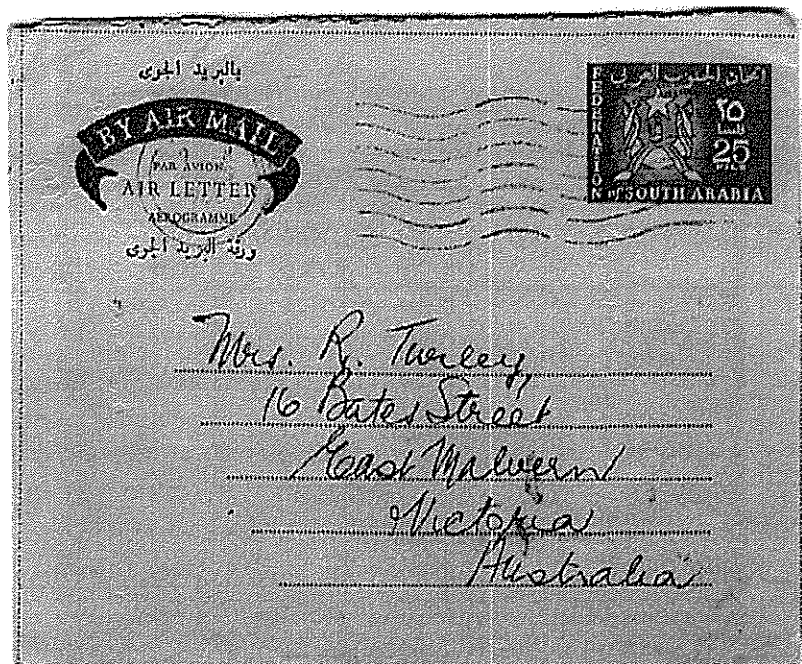 بالبريد الجوى
BY AIR MAIL
PAR AVION
AIR LETTER
AÉROGRAMME
ورقة البريد الجوى
اتحاد الجنوب العربي
FEDERATION
٢٥
25
FILS
OF SOUTH ARABIA
Mrs. R. Turley,
16 Bates Street
East Malvern
Victoria
Australia